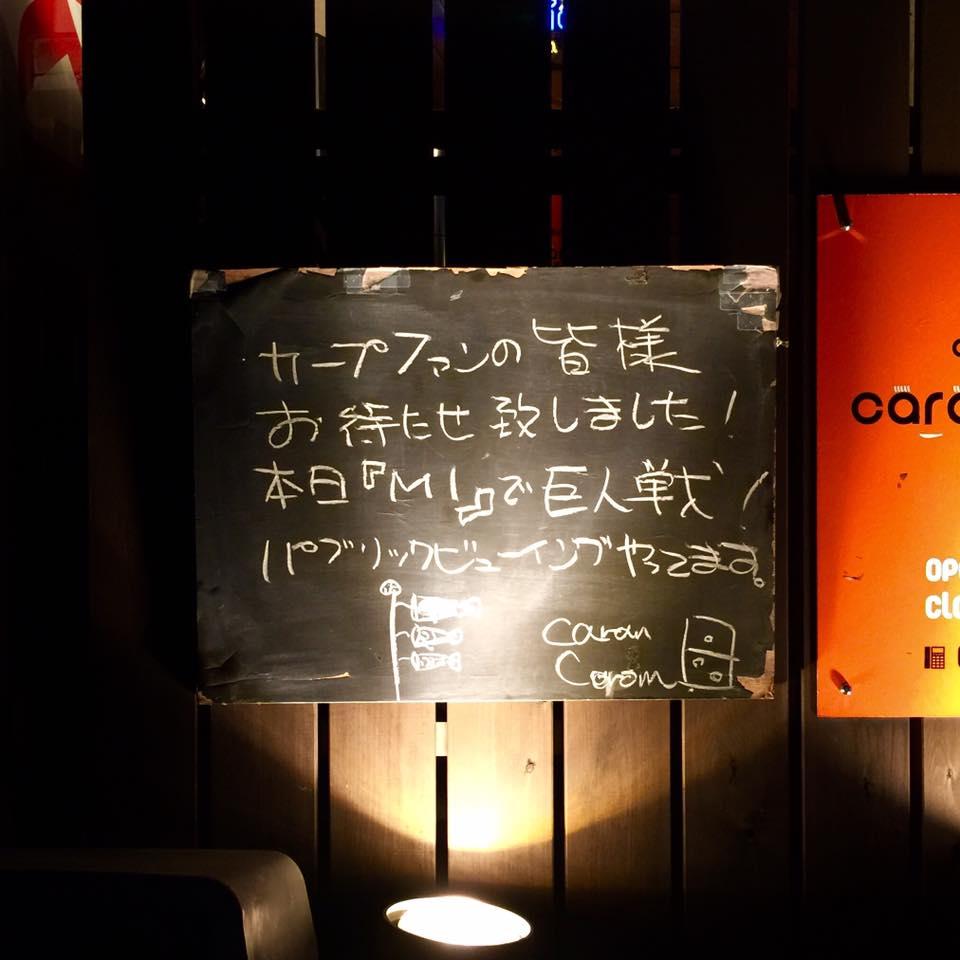 カープファンの皆様
お待たせ致しました!
本日『M1』で巨人戦!
パブリックビューイングやってます。
caran
Corom